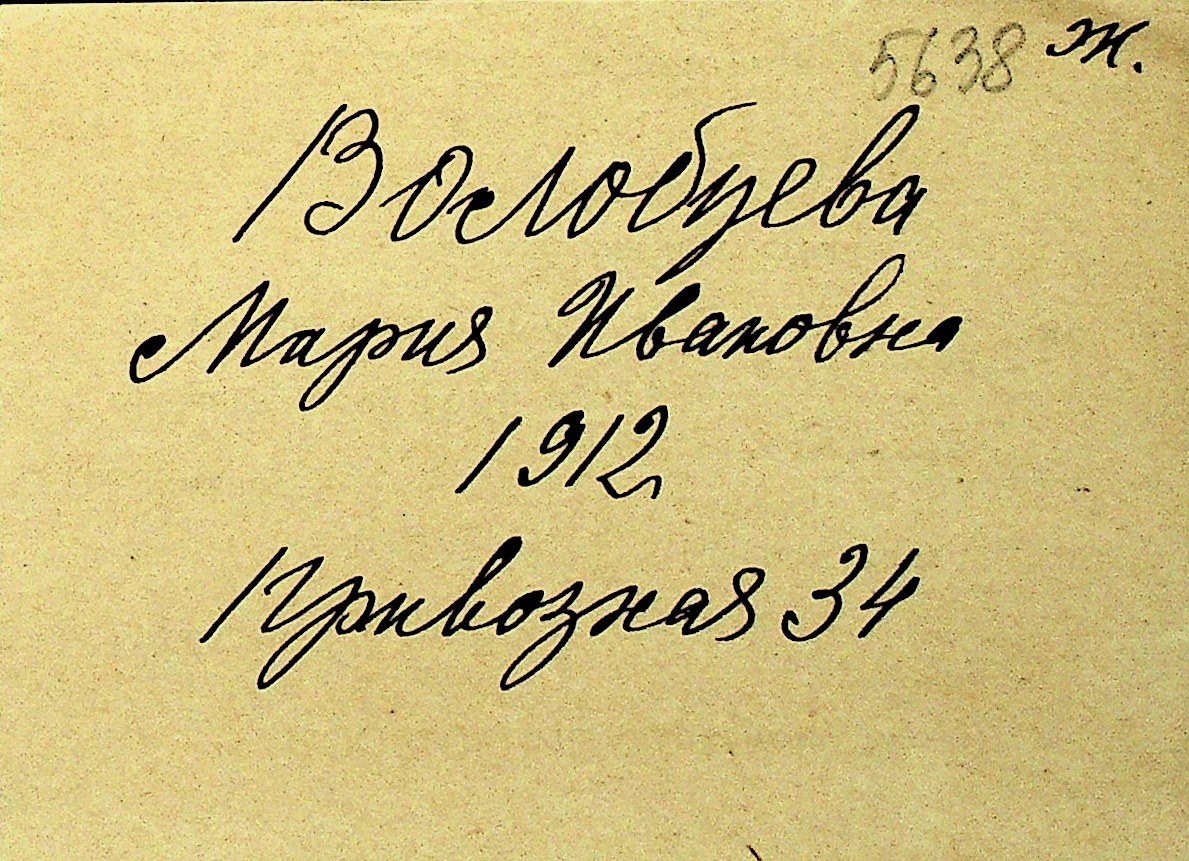 5638 ж.
Волобуева
Мария Ивановна
1912
Привозная 34